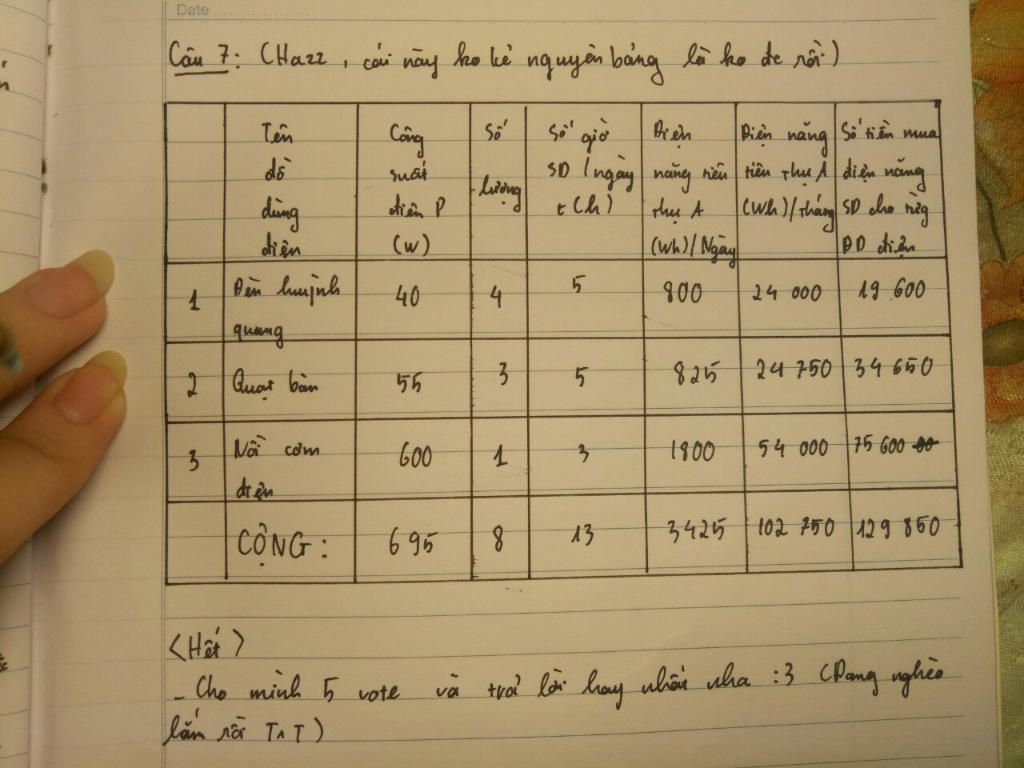 Date
Câu 7: (Hazz, cái này ko kẻ nguyên bảng là ko đc rồi)
Tên đồ dùng điện | Công suất điện P (W) | Số lượng | Số giờ SD/ngày t(h) | Điện năng tiêu thụ A (Wh)/Ngày | Điện năng tiêu thụ A (Wh)/tháng | Số tiền mua điện năng SD cho từng ĐD điện
1 | Đèn huỳnh quang | 40 | 4 | 5 | 800 | 24 000 | 19 600
2 | Quạt bàn | 55 | 3 | 5 | 825 | 24 750 | 34 650
3 | Nồi cơm điện | 600 | 1 | 3 | 1800 | 54 000 | 75 600
CỘNG: | 695 | 8 | 13 | 3425 | 102 750 | 129 850
<Hết>
- Cho mình 5 vote và trả lời hay nhất nha :3 (Đang nghèo
lắm rồi T^T)